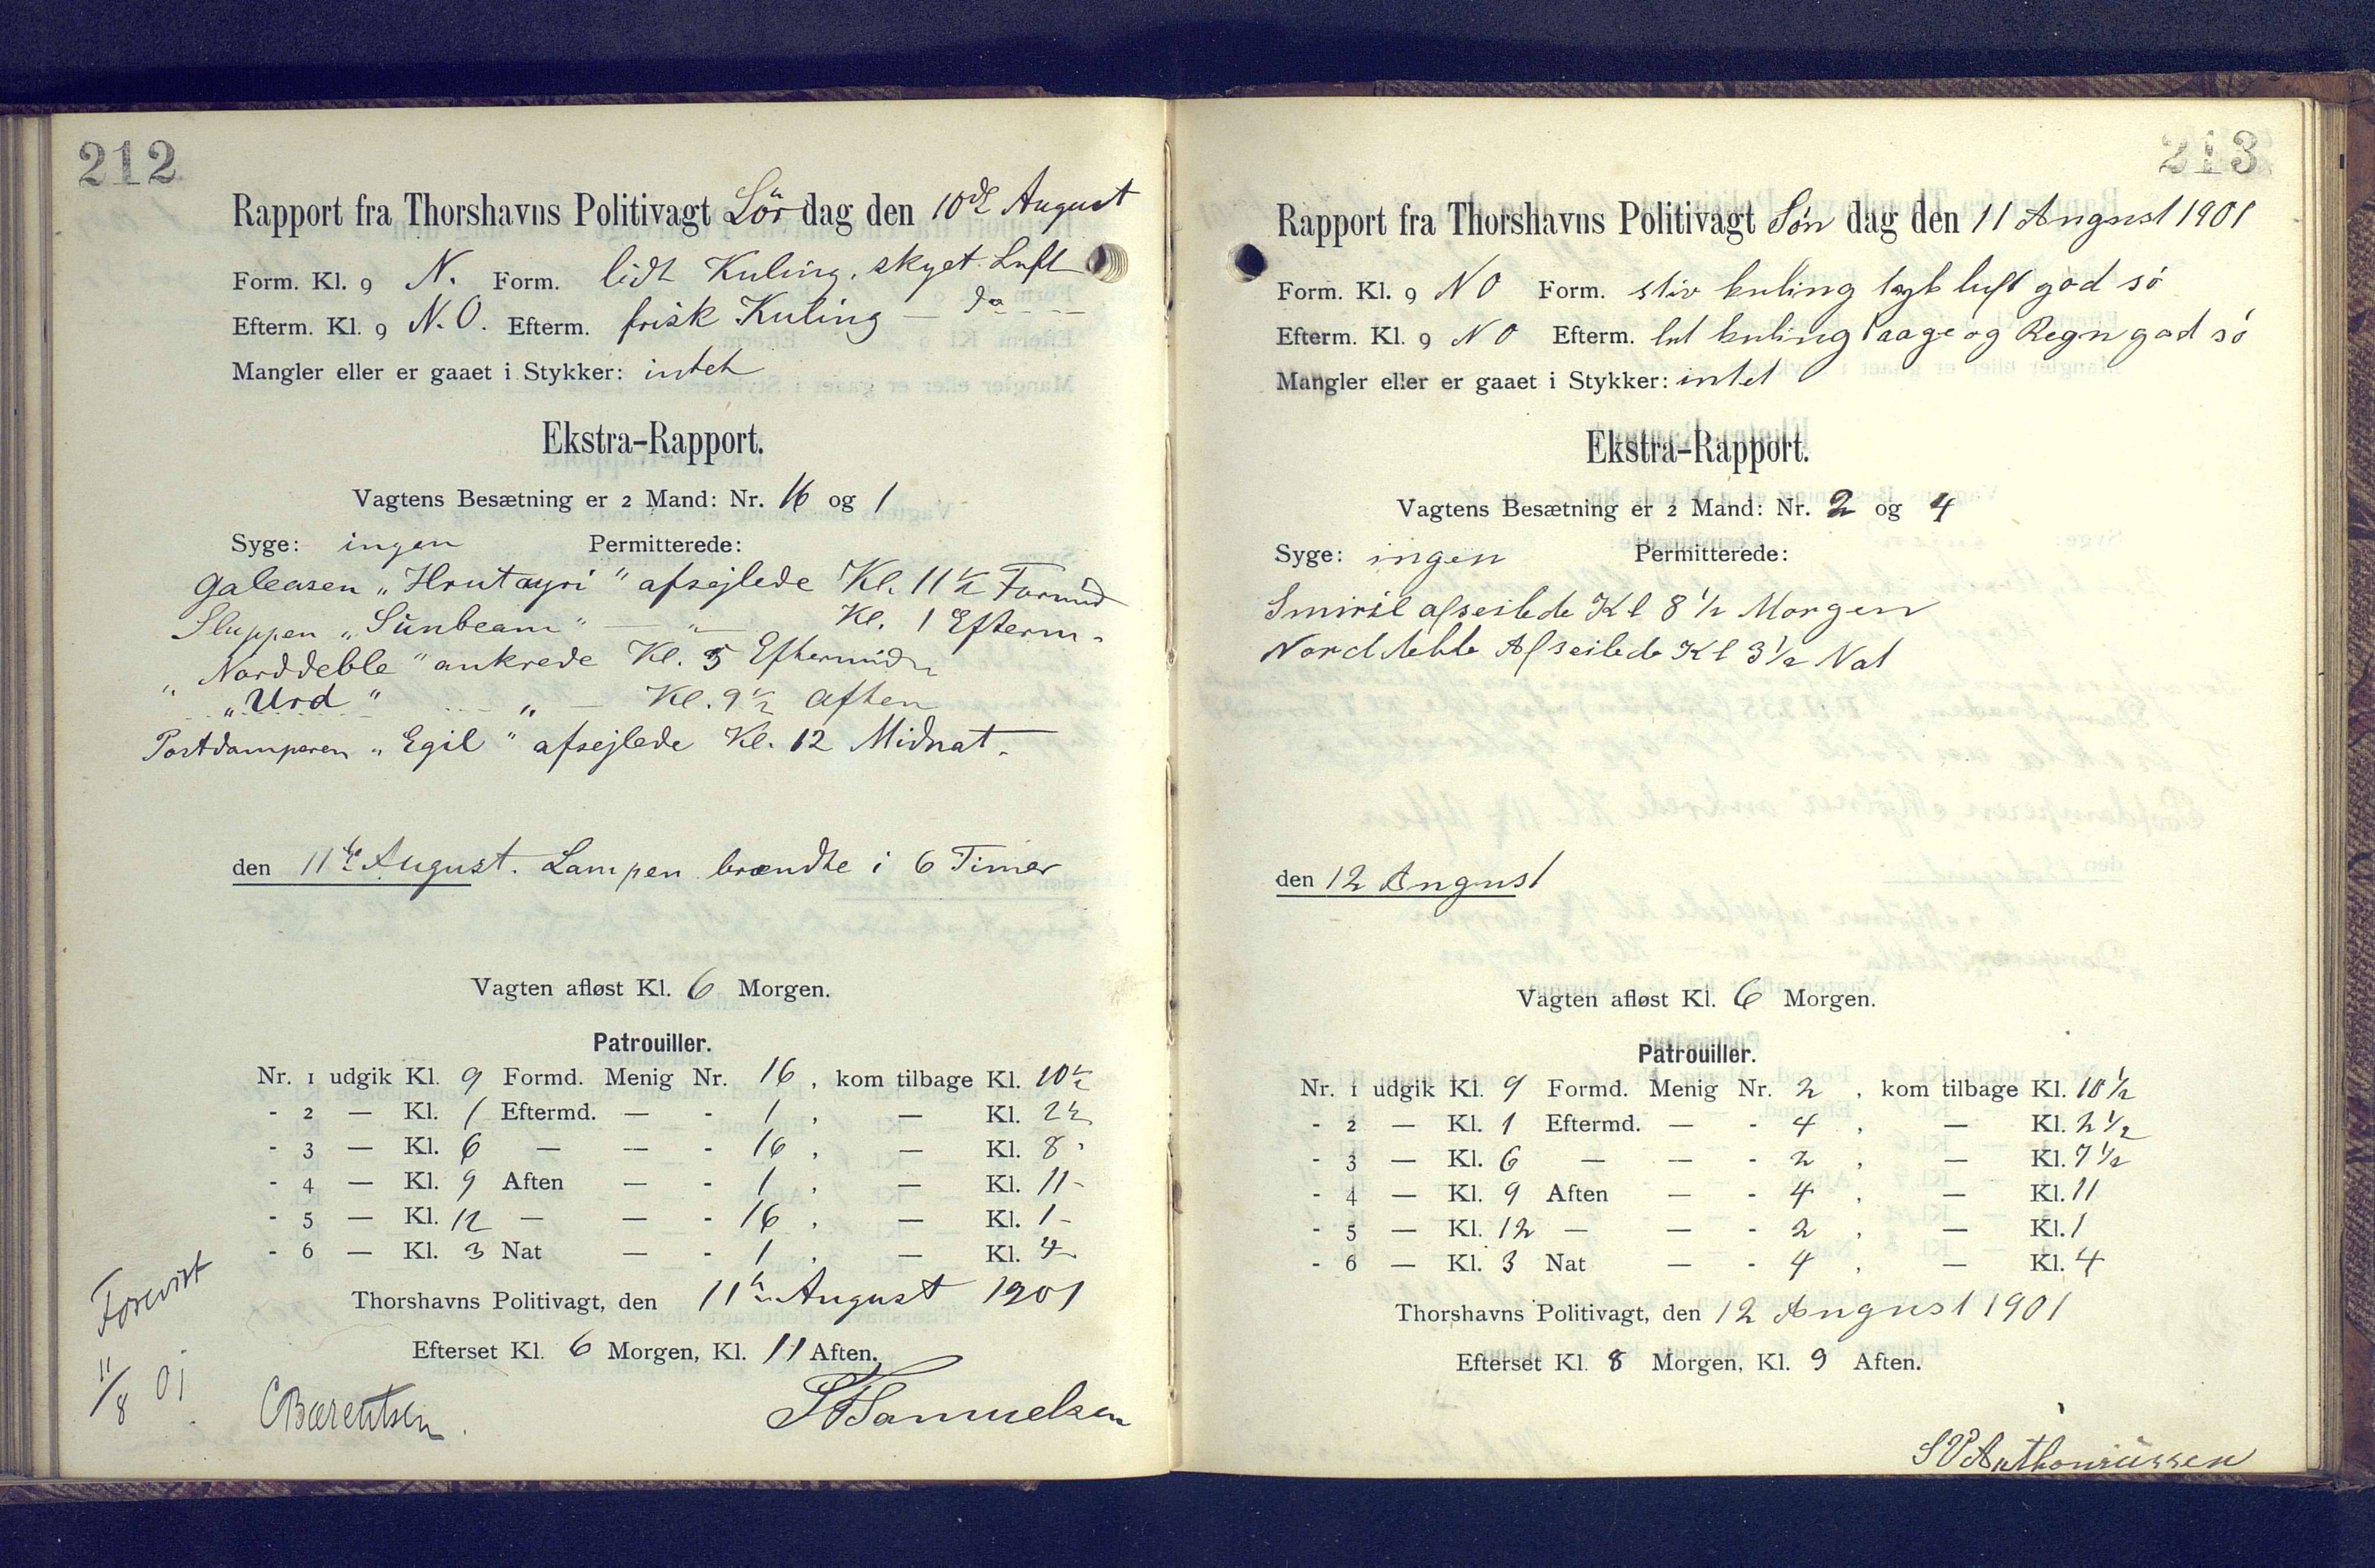 212
Rapport fra Thorshavns Politivagt Lördag den 10de August
Form. Kl. 9 N. Form. lidt Kuling, skyet Luft
Efterm. Kl. 9 N.O. Efterm. frisk Kuling — do — —
Mangler eller er gaaet i Stykker: intet
Ekstra-Rapport.
Vagtens Besætning er 2 Mand: Nr. 16 og 1
Syge: ingen Permitterede:
Galeasen „Hrutoyri" afsejlede Kl. 11½ Formid
Sluppen „Sunbeam" — „ — Kl. 1 Efterm.
„Norddeble" ankrede Kl. 5 Eftermid
„Urd" „ — Kl. 9½ Aften
Postdamperen „Egil" afsejlede Kl. 12 Midnat.
den 11te August. Lampen brændte i 6 Timer
Vagten afløst Kl. 6 Morgen.
Patrouiller.
Nr. 1 udgik Kl. 9 Formd. Menig Nr. 16, kom tilbage Kl. 10½
- 2 — Kl. 1 Eftermd. — - 1, — Kl. 2½
- 3 — Kl. 6 — — - 16, — Kl. 8 -
- 4 — Kl. 9 Aften — - 1, — Kl. 11 -
- 5 — Kl. 12 — — - 16, — Kl. 1 -
- 6 — Kl. 3 Nat — - 1, — Kl. 4 -
Thorshavns Politivagt, den 11te August 1901
Efterset Kl. 6 Morgen, Kl. 11 Aften.
Forevist
11/8 01
CBærentsen.
Samuelsen
213
Rapport fra Thorshavns Politivagt Søn dag den 11 August 1901
Form. Kl. 9 NO Form. stiv kuling tykt luft god sö
Efterm. Kl. 9 NO Efterm. let kuling Taage og Regn god sö
Mangler eller er gaaet i Stykker: intet
Ekstra-Rapport.
Vagtens Besætning er 2 Mand: Nr. 2 og 4
Syge: ingen Permitterede:
Smiril afseilede Kl 8 1/2 Morgen
Norddeble Afseilede Kl 3 1/2 Nat
den 12 August
Vagten afløst Kl. 6 Morgen.
Patrouiller.
Nr. 1 udgik Kl. 9 Formd. Menig Nr. 2, kom tilbage Kl. 10 1/2
- 2 — Kl. 1 Eftermd. — - 4, — Kl. 2 1/2
- 3 — Kl. 6 — — - 2, — Kl. 7 1/2
- 4 — Kl. 9 Aften — - 4, — Kl. 11
- 5 — Kl. 12 — — - 2, — Kl. 1
- 6 — Kl. 3 Nat — - 4, — Kl. 4
Thorshavns Politivagt, den 12 August 1901
Efterset Kl. 8 Morgen, Kl. 9 Aften.
SPAnthoniussen